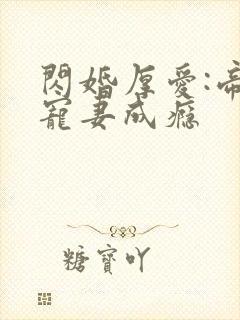 閃婚厚愛:帝
寵妻成癮
糖寶吖